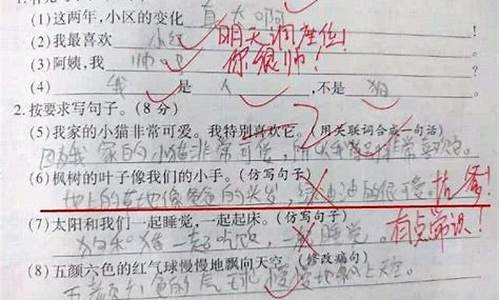 (1)这两年,小区的变化 真大啊
(2)我最喜欢 小红 明天调座位!
(3)阿姨,我 帅吗 你很帅!
(4) 我 是 人 ,不是 狗
2.按要求写句子。(8分)
(5)我家的小猫非常可爱。我特别喜欢它。(用关联词合成一句话)
因为我家的小猫非常可爱,所以我非常喜欢它。
(6)枫树的叶子像我们的小手。(仿写句子)
地上的草地像爸爸的头发,绿油油的很可爱。抗爹!
(7)太阳和我们一起睡觉,一起起床。(仿写句子)
狗和猪一起吃饭,一起睡觉。有点常识!
(8)五颜六色的红气球慢慢地飘向天空。(修改病句)
五颜六色的气球慢慢地飘上天空。